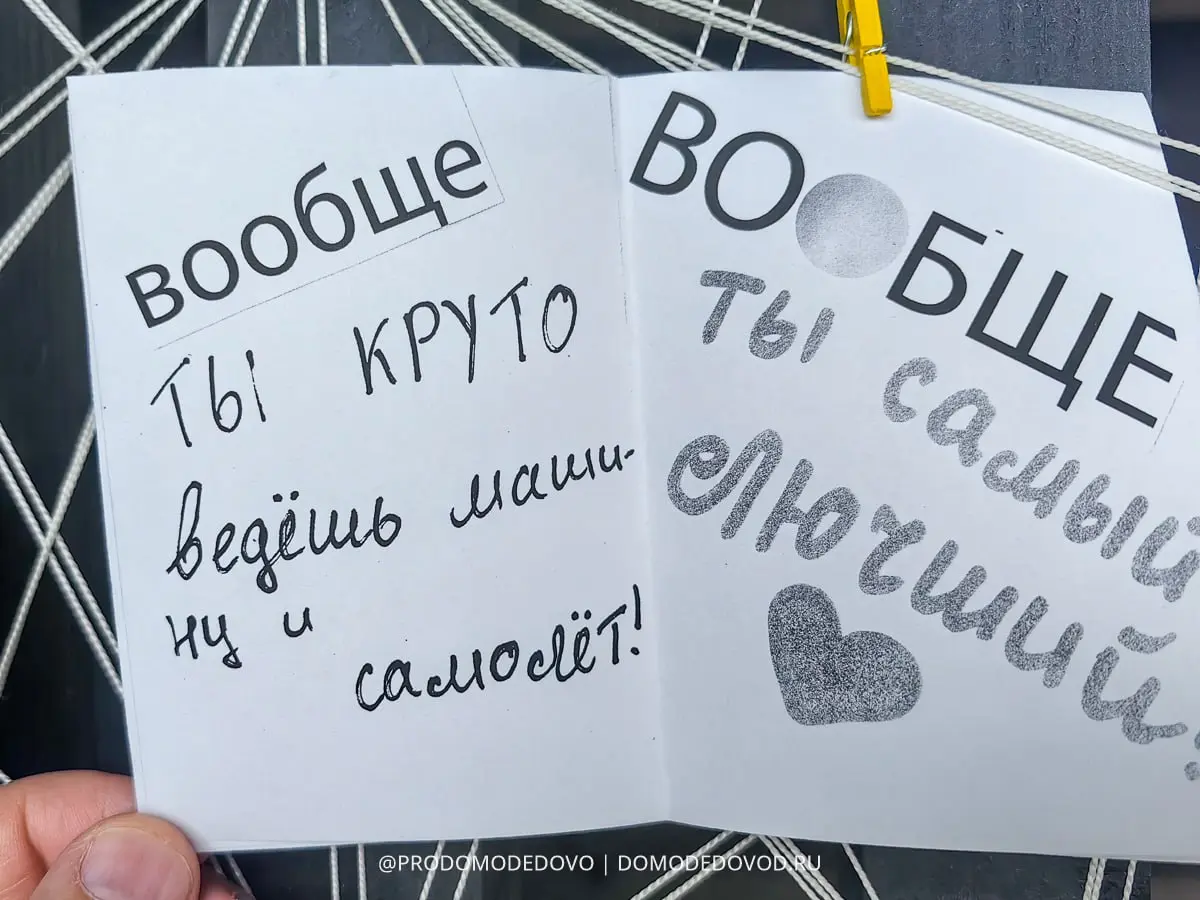 вообще
ты круто
ведёшь маши-
ну и
самолёт!
ВООБЩЕ
ты самый
лючший!
@PRODOMODEDOVO | DOMODEDOVOD.RU